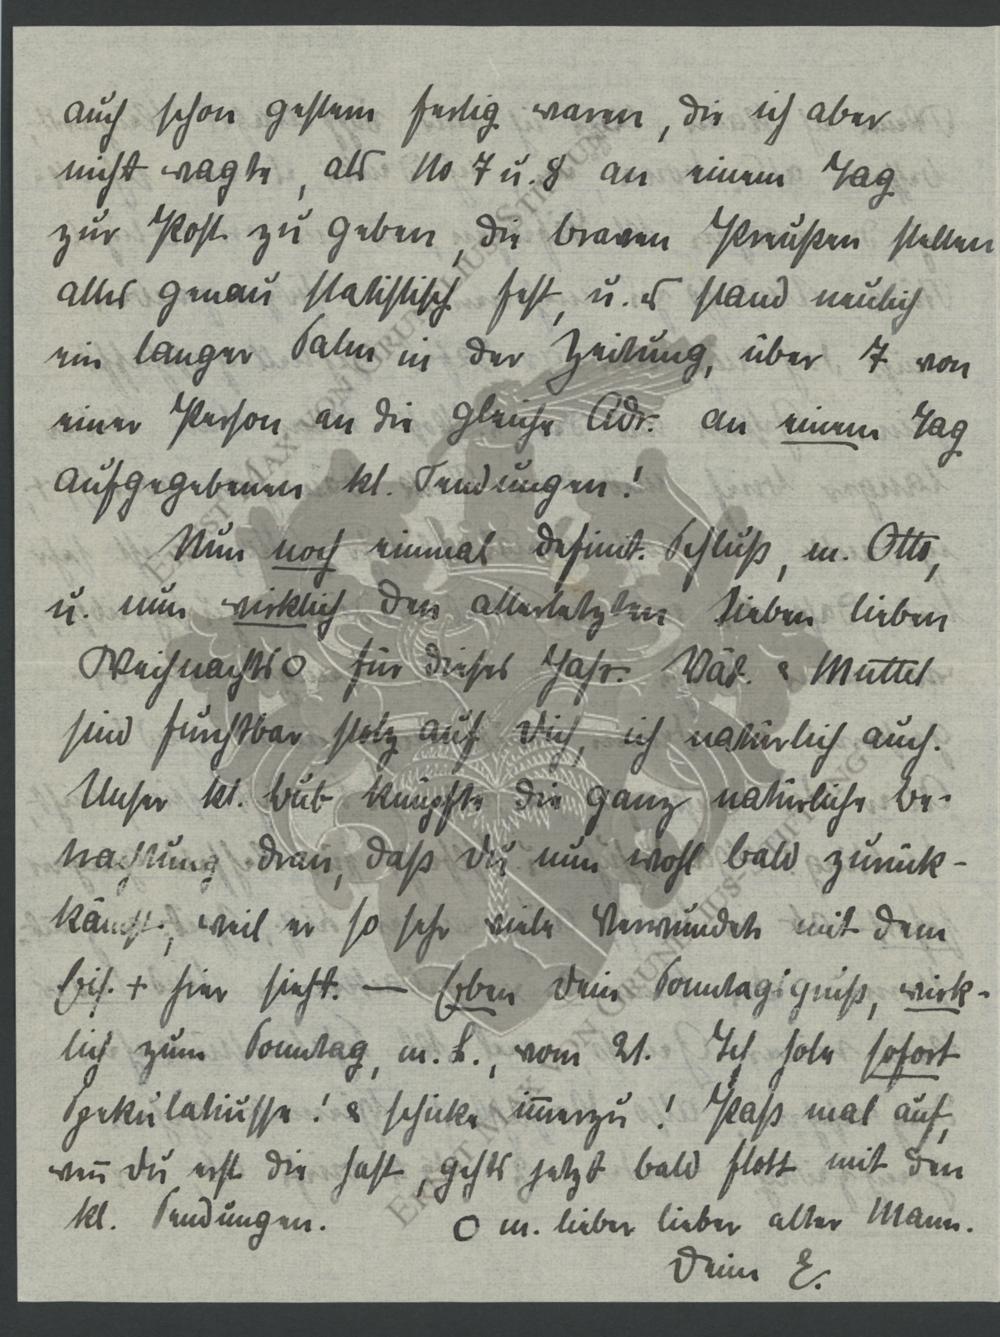 auch schon gestern fertig waren, die ich aber
nicht wagte, als No 7 u. 8 an einem Tag
zur Post zu geben, die braven Preußen stellen
alles genau statistisch fest, u. es stand neulich
ein langer Salm in der Zeitung, über 7 von
einer Person an die gleiche Adr. an einem Tag
aufgegebenen kl. Sendungen!
Nun noch einmal definit. Schluß, m. Otto,
u. nun wirklich den allerletzten lieben lieben
WeihnachtsO für dieses Jahr. Vat. & Muttel
sind furchtbar stolz auf Dich, ich natürlich auch.
Unser kl. Bub knüpfte die ganz natürliche Be-
trachtung dran, daß Du nun wohl bald zurück-
kämst, weil er so sehr viele Verwundete mit dem
Eis. + hier sieht. — Eben Dein Sonntagsgruß, wirk-
lich zum Sonntag, m. L., vom 21. Ich hole sofort
Spekulatiusse! & schicke immerzu! Paß mal auf,
wenn Du erst die hast, gehts jetzt bald flott mit den
kl. Sendungen. O m. lieber lieber alter Mann.
Deine E.
ERNST MAX VON GRUNELIUS-STIFTUNG
ERNST MAX VON GRUNELIUS-STIFTUNG